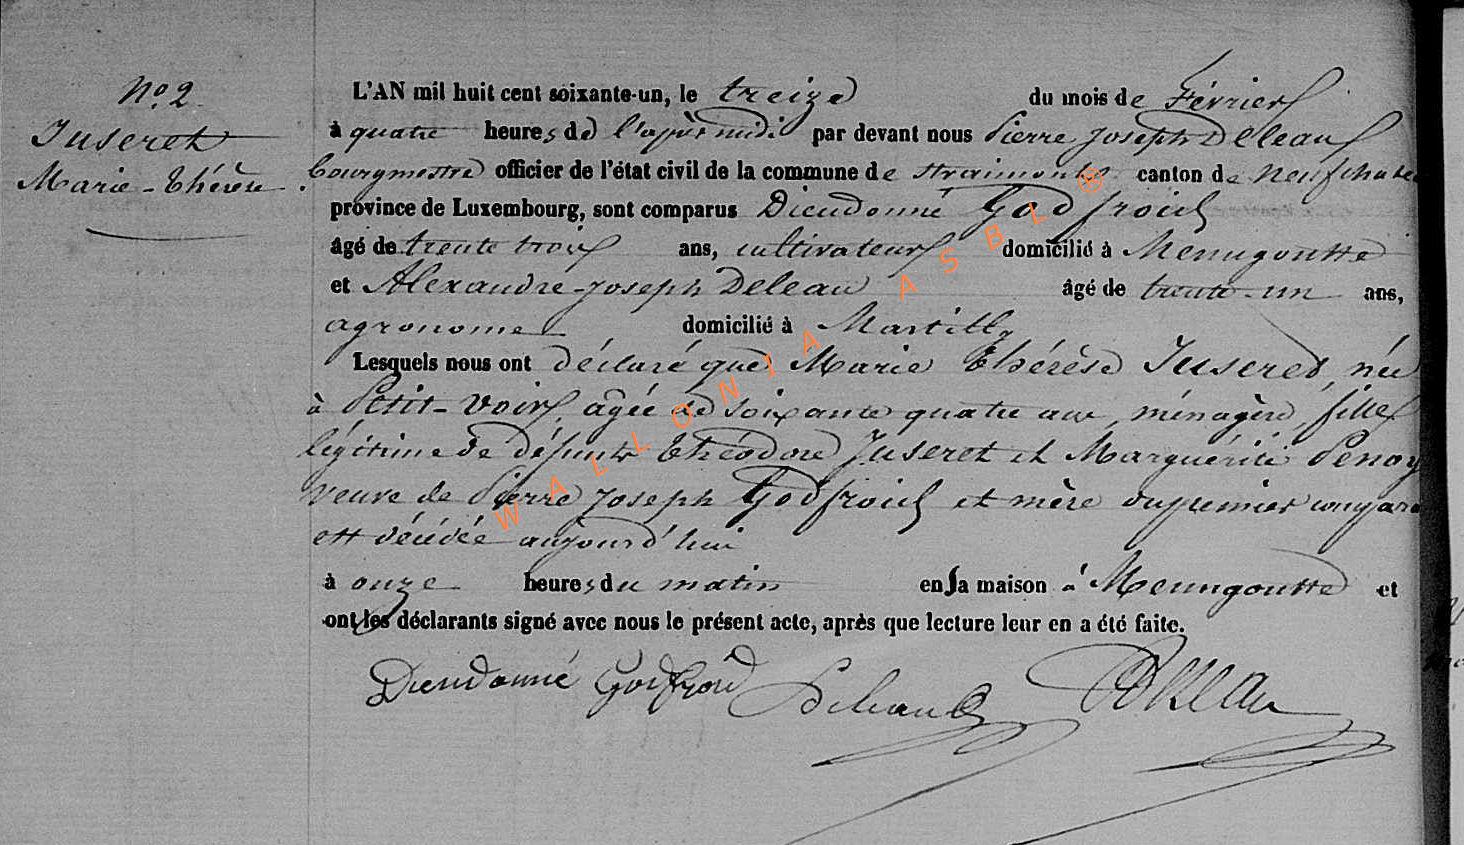 No. 2
Juseret
Marie-Thérèse.
L'AN mil huit cent soixante-un, le treize du mois de Février
à quatre heures de l'après midi par devant nous Pierre Joseph Deleau
bourgmestre officier de l'état civil de la commune de Straimont canton de Neufchateau
province de Luxembourg, sont comparus Dieudonné Godfroid
âgé de trente trois ans, cultivateur domicilié à Menugoutte
et Alexandre-Joseph Deleau âgé de trente-un ans,
agronome domicilié à Martilly
Lesquels nous ont déclaré que Marie Thérèse Juseret, née
à Petit-Voir, agée de soixante quatre ans, ménagère, fille
légitime de défunts Théodore Juseret et Marguérite Penoy
veuve de Pierre Joseph Godfroid et mère du premier comparant
est décédée aujourd'hui
à onze heures du matin en sa maison à Menugoutte et
ont les déclarants signé avec nous le présent acte, après que lecture leur en a été faite.
Dieudonné Godfroid Deleau Deleau
WALLONIA ASBL ®